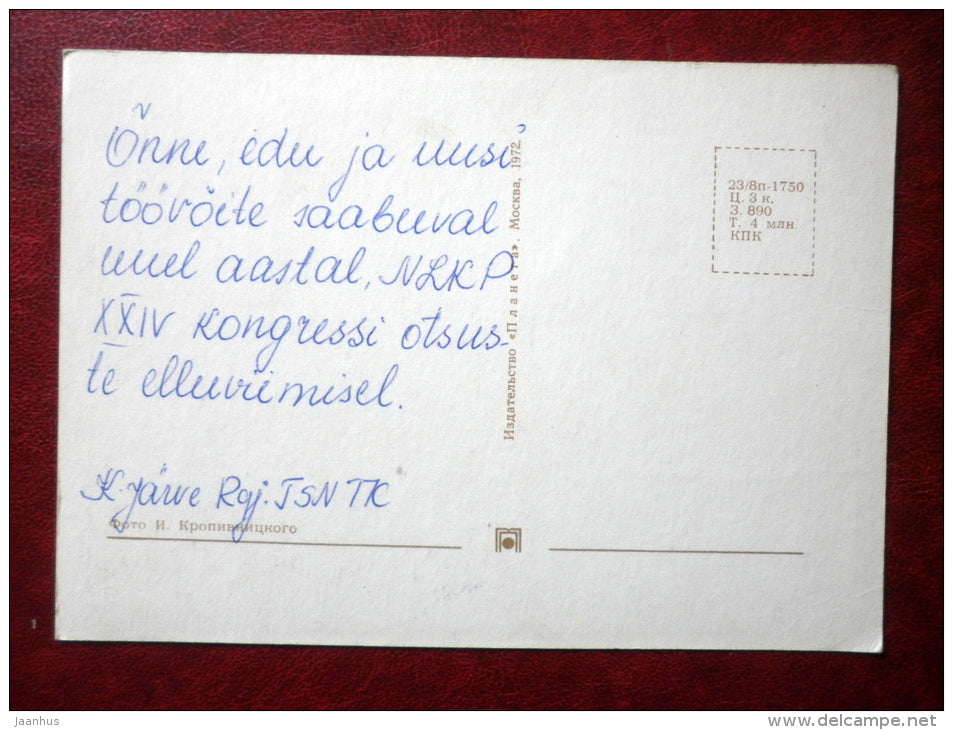 Õnne, edu ja uusi
töövõite saabuval
uuel aastal, NLKP
XXIV kongressi otsus-
te elluviimisel.
K. Järve Rgj. TSN TK
Фото И. Кропивницкого
Издательство «Планета». Москва, 1972.
23/8п-1750
Ц. 3 к.
З. 890
Т. 4 млн
КПК
jaanhus
www.delcampe.net